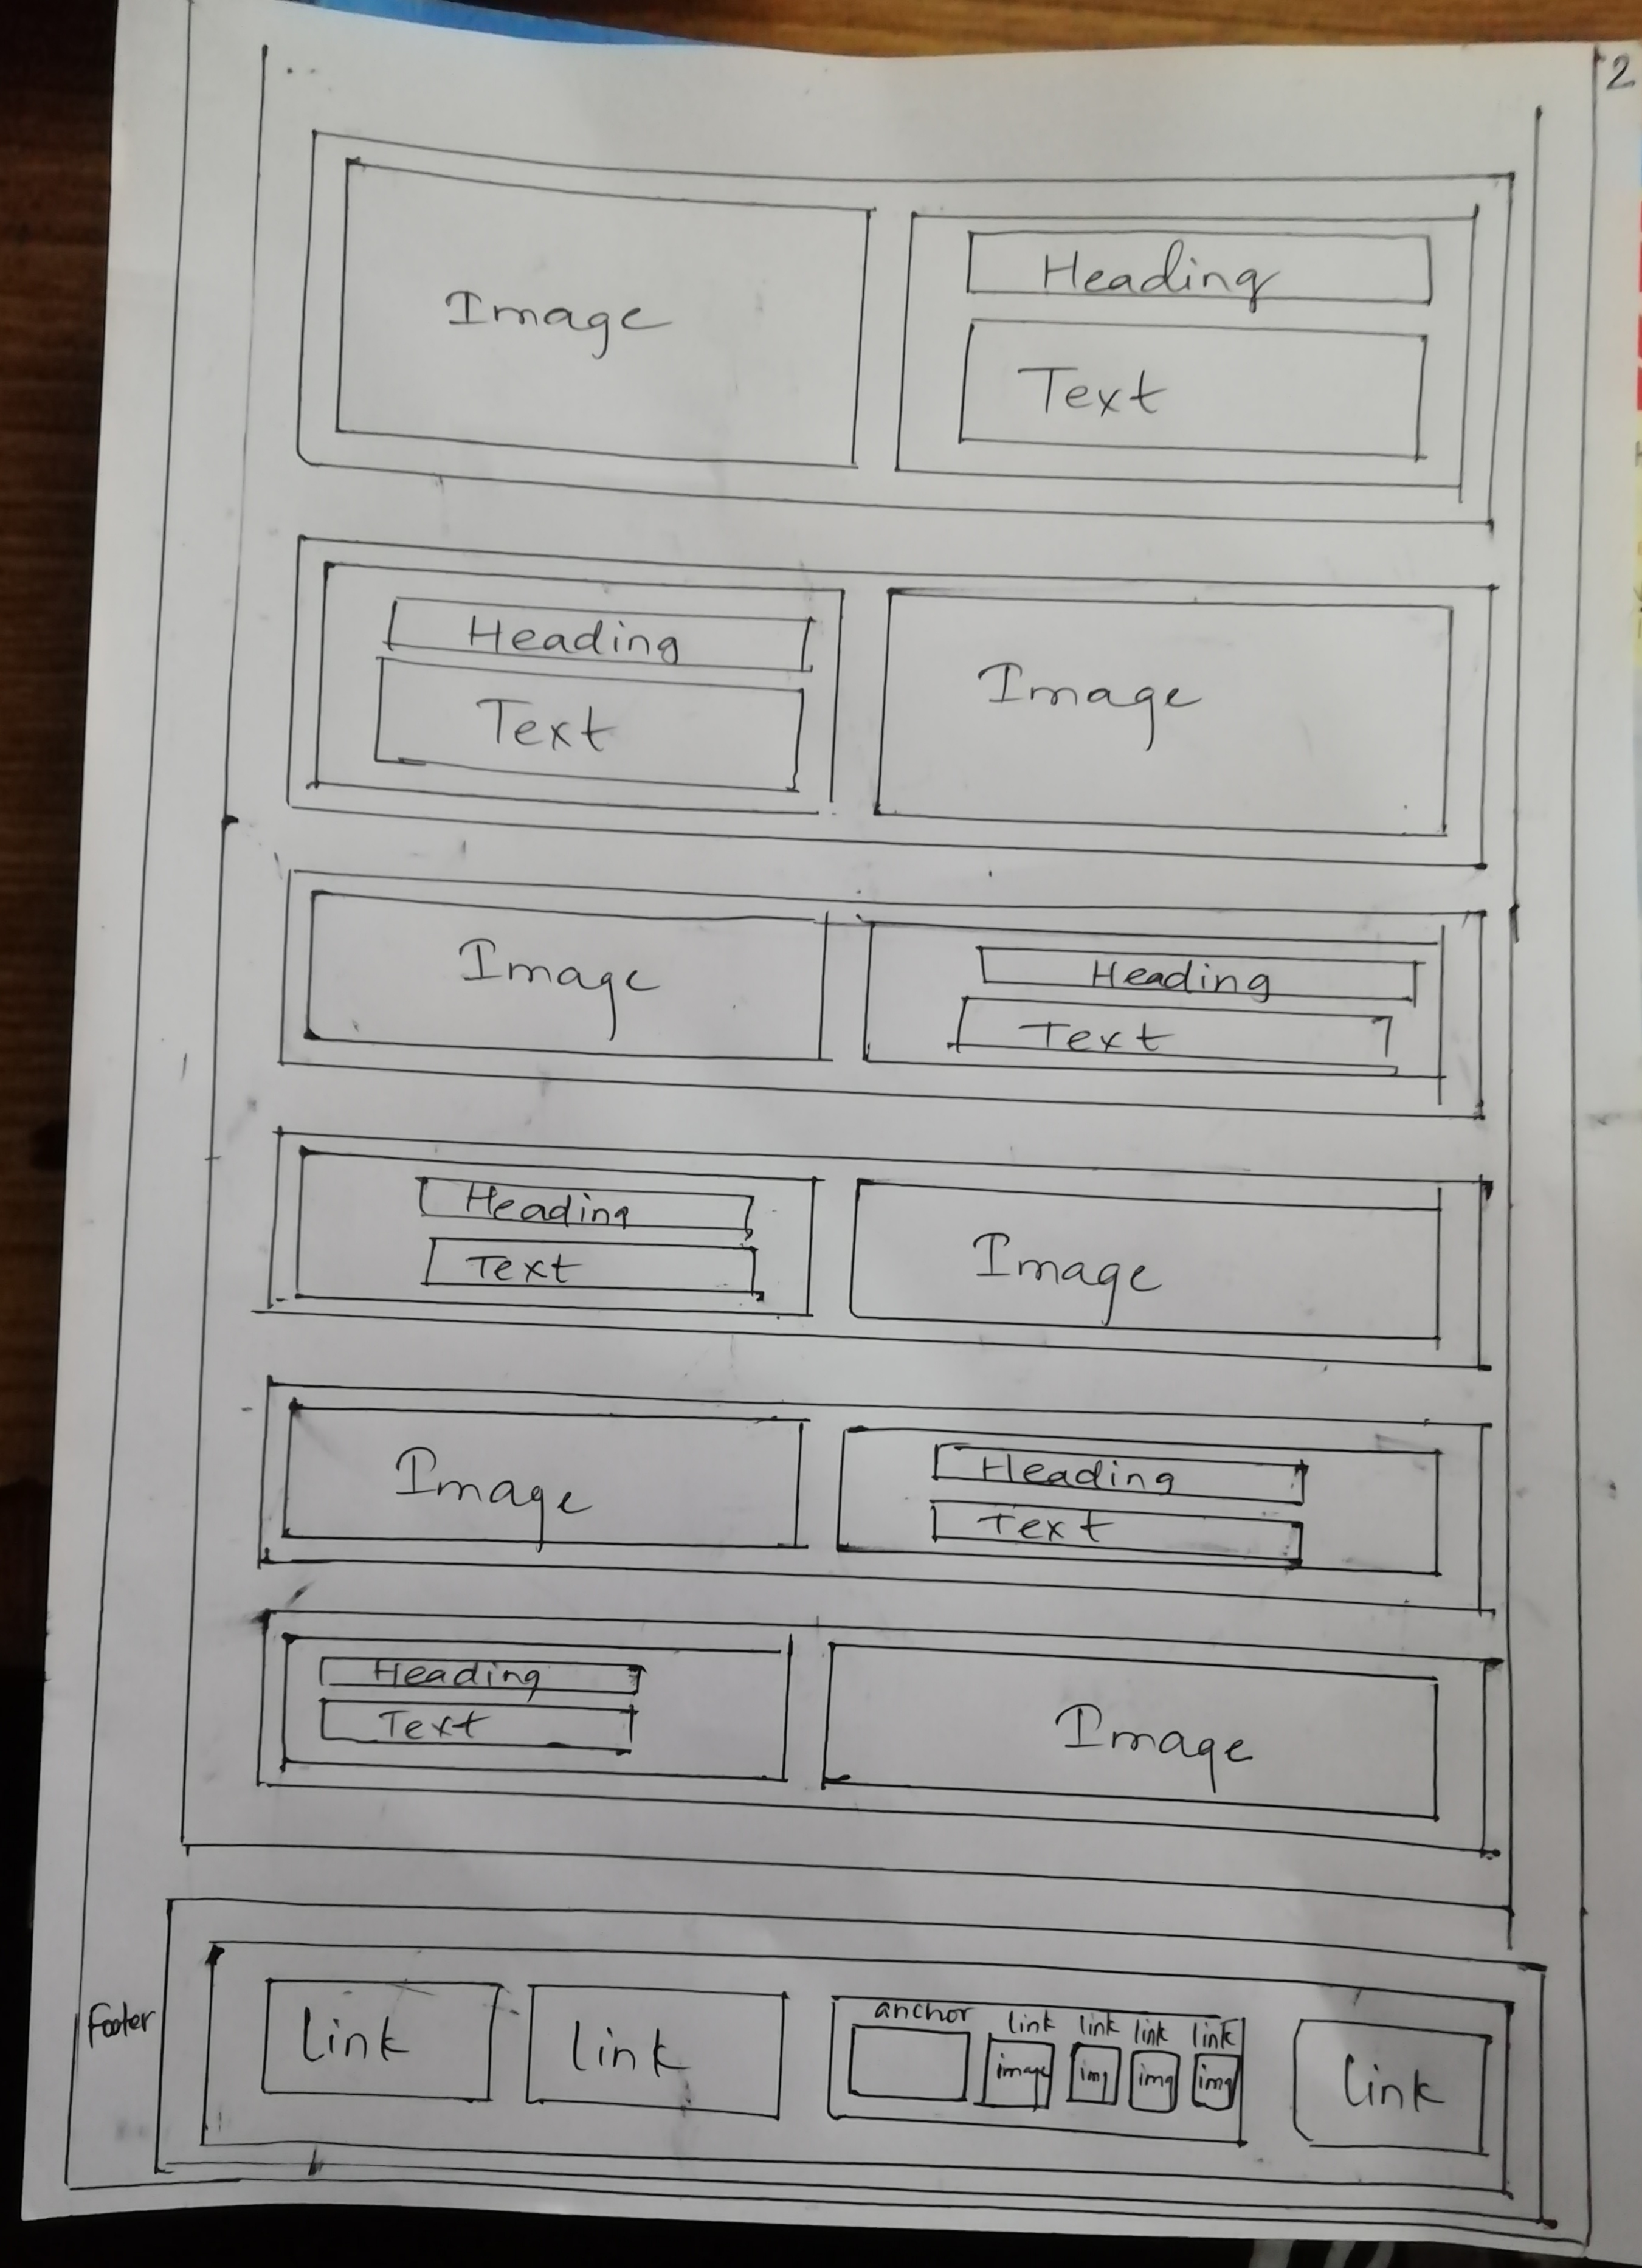 2
Image
Heading
Text
Heading
Text
Image
Image
Heading
Text
Heading
Text
Image
Image
Heading
Text
Heading
Text
Image
Footer
link
link
anchor link link link link
image img img img
link